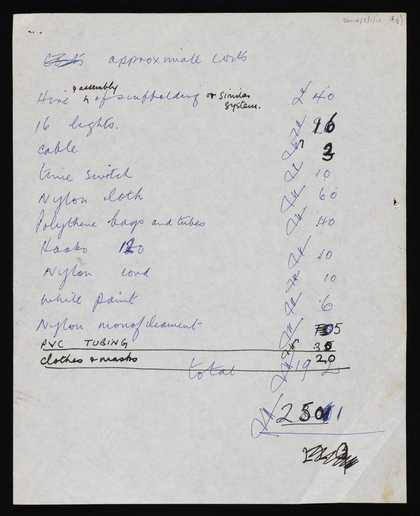 approximate costs
Hire & assembly of scaffolding or similar system. £ 40
16 lights. 16
cable 3
time switch 10
Nylon cloth 60
Polythene bags and tubes 40
Masks 120 10
Nylon cord 10
White paint 6
Nylon monofilament 5
PVC TUBING 35
clothes & masks 20
total